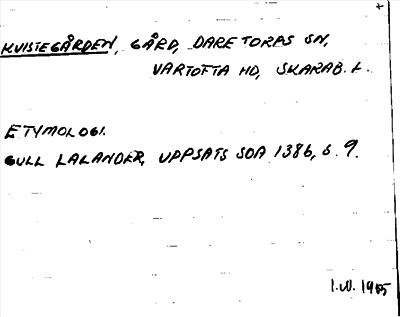 +
KVISTEGÅRDEN, GÅRD, DARETORPS SN,
VARTOFTA HD, SKARAB. L.
ETYMOLOGI.
GULL LALANDER, UPPSATS SOA 1386, S. 9.